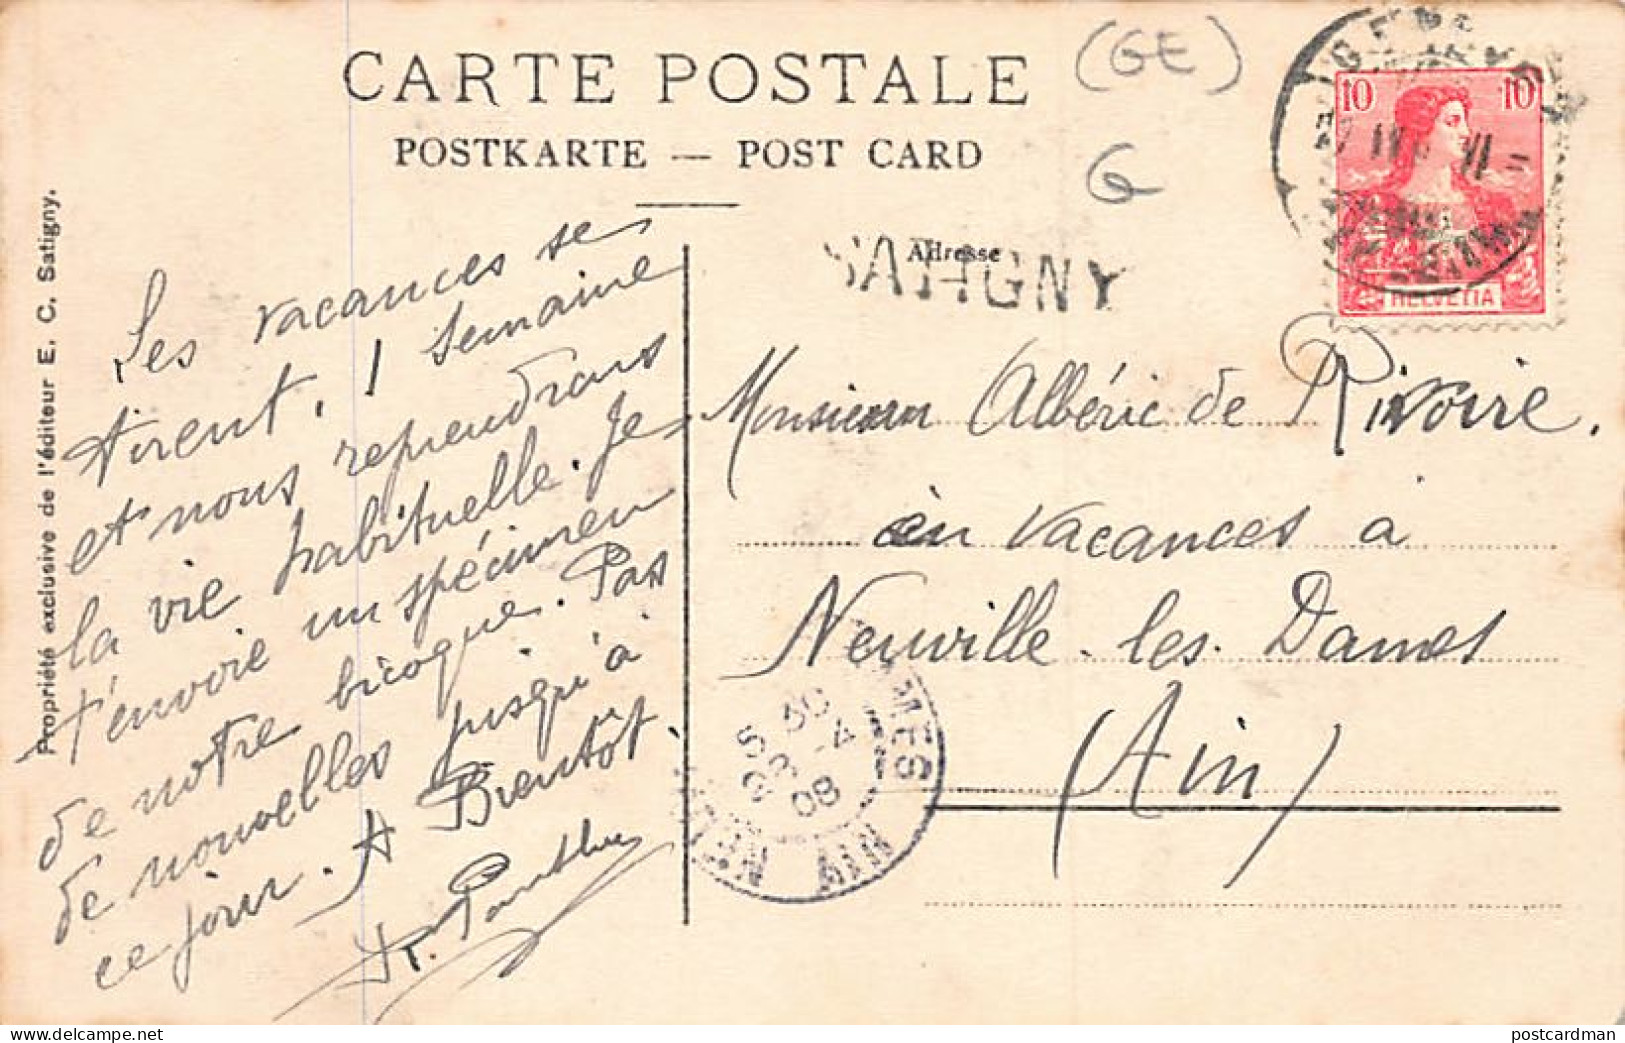 CARTE POSTALE
POSTKARTE — POST CARD
(GE)
G
Adresse
SATIGNY
10 10
HELVETIA
Propriété exclusive de l'éditeur E. C. Satigny.
Les vacances se
tirent, 1 semaine
et nous reprendrons
la vie habituelle. Je
t'envoie un spécimen
de notre bicoque. Pas
de nouvelles jusqu'à
ce jour. A Bientôt.
Monsieur Albéric de Rivoire.
en vacances à
Neuville-les-Dames
(Ain)
5 30
28 -4
08
AIN
postcardman